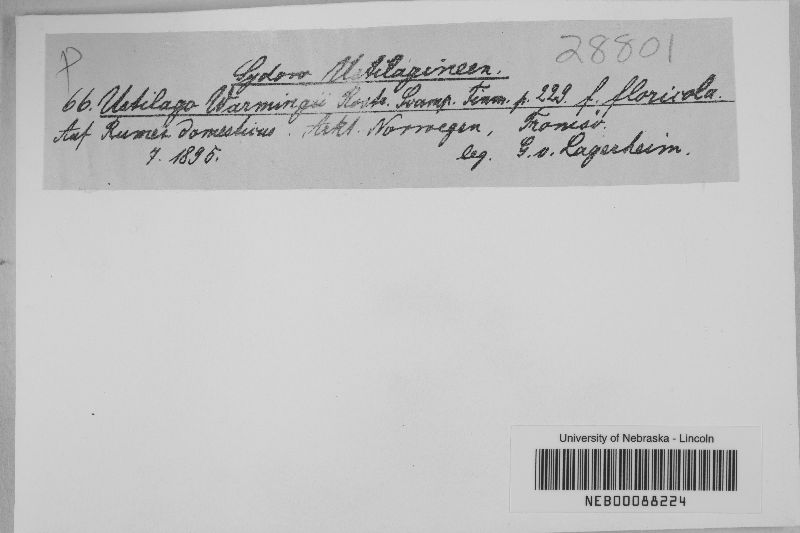 28801
P
Sydow Ustilagineen.
66. Ustilago Warmingii Rostr. Svamp. Finm. p. 229. f. floricola.
Auf Rumex domesticus. Arkt. Norwegen, Tromsö.
7. 1895. leg. G. v. Lagerheim.
University of Nebraska - Lincoln
NEB00088224